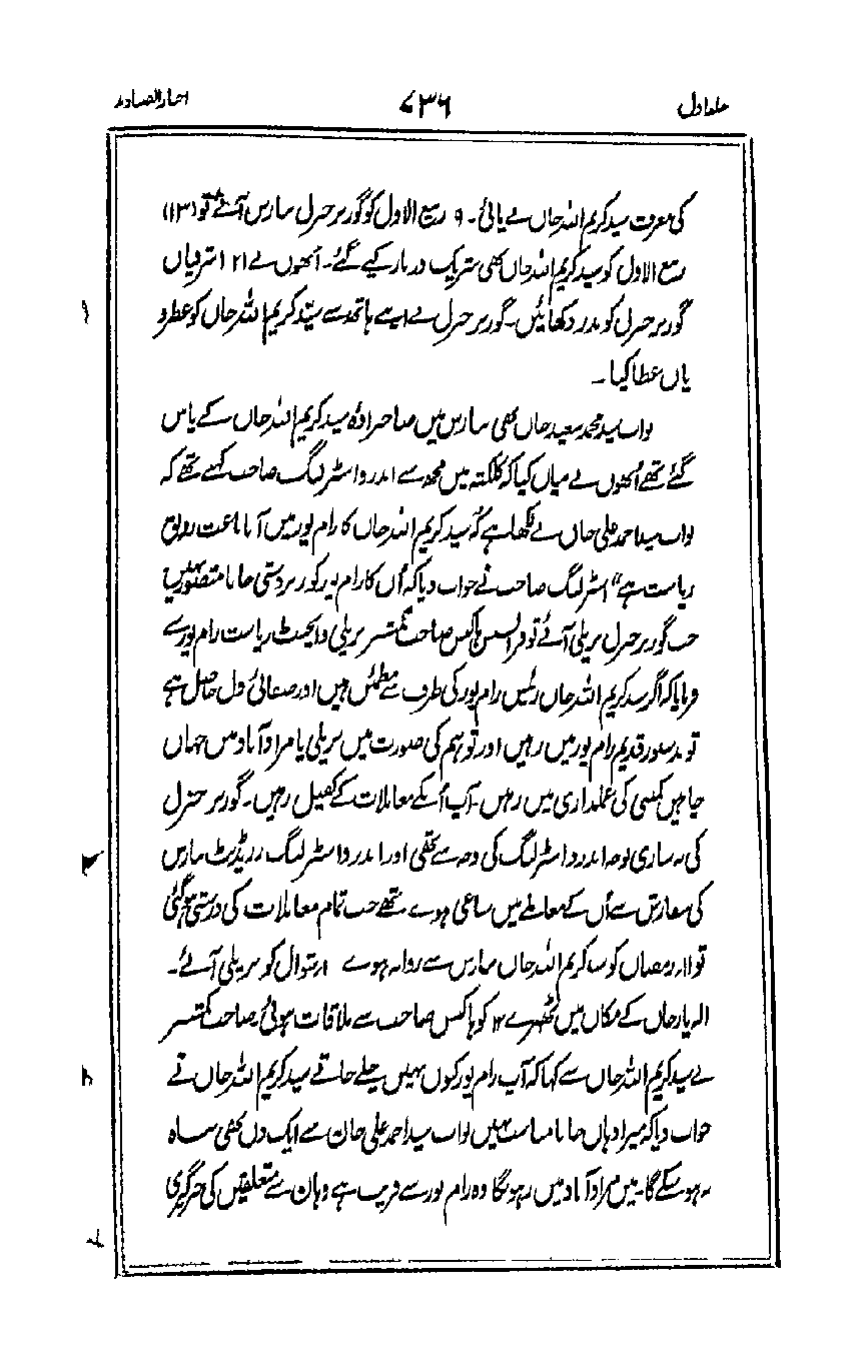 جلد اول ۷۳۶ اخبار الصنادید
کی معرفت سید کریم اللہ خاں نے پائی۔ ۹ ربیع الاول کو گورنر جنرل بنارس آئے تو (۱۳)
ربیع الاول کو سید کریم اللہ خاں بھی شریک دربار کیے گئے۔ اُنھوں نے ۲۱ اشرفیاں
گورنر جنرل کو نذر دکھائیں۔ گورنر جنرل نے اپنے ہاتھ سے سید کریم اللہ خاں کو عطر و
پاں عطا کیا۔
نواب سید محمد سعید خاں بھی بنارس میں صاحبزادہ سید کریم اللہ خاں کے پاس
گئے تھے اُنھوں نے بیاں کیا کہ کلکتہ میں مجھ سے اندرو اسٹرلنگ صاحب کہتے تھے کہ
نواب سید احمد علی خاں نے لکھا ہے کہ سید کریم اللہ خاں کا رام پور میں آنا باعث رونق
ریاست ہے" اسٹرلنگ صاحب نے جواب دیا کہ اُں کا رام پور کو زبردستی جانا متصور نہیں
جب گورنر جنرل بریلی آئے تو فرانسس ہاکنس صاحب کمشنر بریلی و ایجنٹ ریاست رام پور سے
فرمایا کہ اگر سید کریم اللہ خاں رئیس رام پور کی طرف سے مطمئن ہیں اور صفائی دل حاصل ہے
تو بدستور قدیم رام پور میں رہیں اور توہم کی صورت میں بریلی یا مراد آباد میں جہاں
چاہیں کمپنی کی عملداری میں رہیں۔ آپ اُنکے معاملات کے کفیل رہیں۔ گورنر جنرل
کی یہ ساری توجہ اندرو اسٹرلنگ کی وجہ سے تھی اور اندرو اسٹرلنگ رزیڈنٹ بنارس
کی سفارش سے اُں کے معاملے میں ساعی ہوے تھے جب تمام معاملات کی درستی ہوگئی
تو ۱۱ رمضاں کو سید کریم اللہ خاں بنارس سے روانہ ہوے ۱ شوال کو بریلی آئے۔
الہ یار خاں کے مکاں میں ٹھہرے ۴ کو ہاکنس صاحب سے ملاقات ہوئی۔ صاحب کمشنر
نے سید کریم اللہ خاں سے کہا کہ آپ رام پور کوں نہیں چلے جاتے سید کریم اللہ خاں نے
جواب دیا کہ میرا وہاں جانا مناسب نہیں نواب سید احمد علی خان سے ایک دں بھی نباہ
نہ ہو سکے گا۔ میں مراد آباد میں رہونگا وہ رام پور سے قریب ہے وہان سے متعلقیں کی خبر گیری